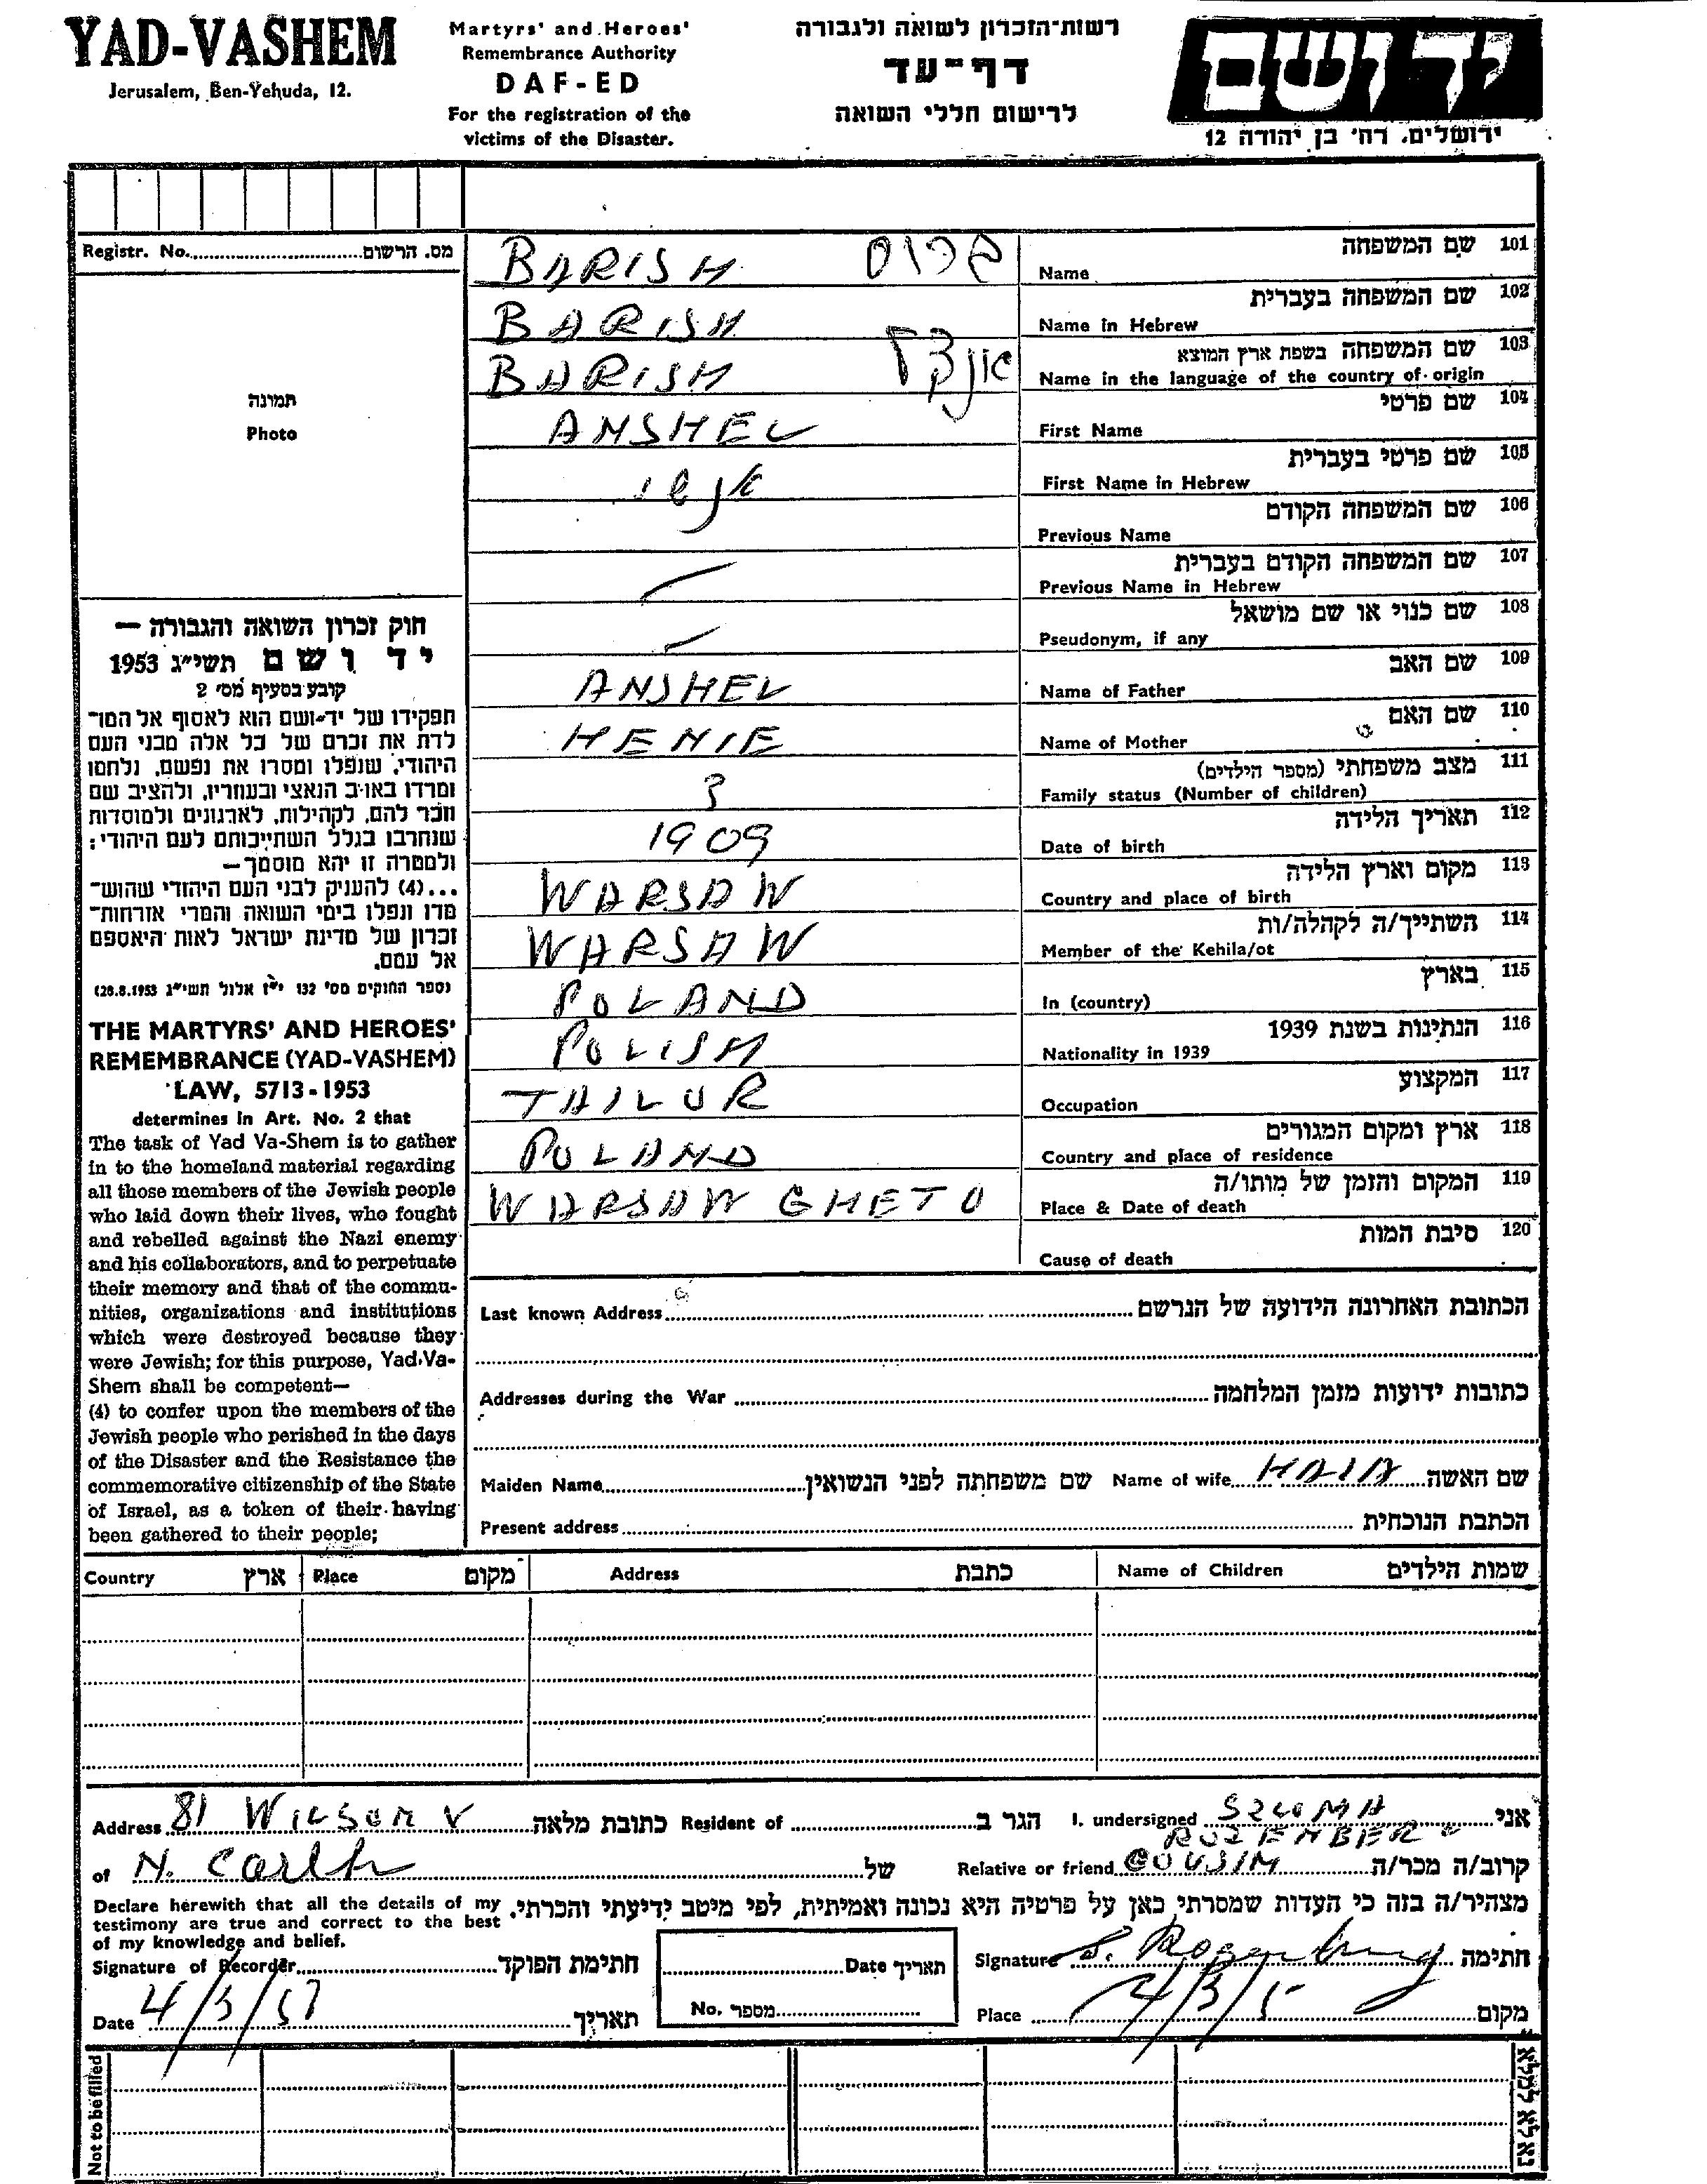 YAD-VASHEM
Jerusalem, Ben-Yehuda, 12.
Martyrs' and Heroes'
Remembrance Authority
DAF-ED
For the registration of the
victims of the Disaster.
רשות-הזכרון לשואה ולגבורה
דף-עד
לרישום חללי השואה
יד ושם
ירושלים, רח' בן יהודה 12
Registr. No. מס. הרשום
תמונה
Photo
חוק זכרון השואה והגבורה –
יד ושם תשי"ג 1953
קובע בסעיף מס' 2
תפקידו של יד-ושם הוא לאסוף אל המו־
לדת את זכרם של כל אלה מבני העם
היהודי, שנפלו ומסרו את נפשם, נלחמו
ומרדו באויב הנאצי ובעוזריו, ולהציב שם
וזכר להם, לקהילות, לארגונים ולמוסדות
שנחרבו בגלל השתייכותם לעם היהודי;
ולמטרה זו יהא מוסמך—
...(4) להעניק לבני העם היהודי שהוש־
מדו ונפלו בימי השואה והמרי אזרחות־
זכרון של מדינת ישראל לאות היאספם
אל עמם.
(ספר החוקים מס' 132 י"ז אלול תשי"ג 28.8.1953)
THE MARTYRS' AND HEROES'
REMEMBRANCE (YAD-VASHEM)
LAW, 5713-1953
determines in Art. No. 2 that
The task of Yad Va-Shem is to gather
in to the homeland material regarding
all those members of the Jewish people
who laid down their lives, who fought
and rebelled against the Nazi enemy
and his collaborators, and to perpetuate
their memory and that of the commu-
nities, organizations and institutions
which were destroyed because they
were Jewish; for this purpose, Yad-Va-
Shem shall be competent—
(4) to confer upon the members of the
Jewish people who perished in the days
of the Disaster and the Resistance the
commemorative citizenship of the State
of Israel, as a token of their having
been gathered to their people;
BARISH Name שם המשפחה 101
BARISH Name in Hebrew שם המשפחה בעברית 102
BARISH Name in the language of the country of origin שם המשפחה בשפת ארץ המוצא 103
ANSHEL First Name שם פרטי 104
First Name in Hebrew שם פרטי בעברית 105
Previous Name שם המשפחה הקודם 106
Previous Name in Hebrew שם המשפחה הקודם בעברית 107
Pseudonym, if any שם כנוי או שם מושאל 108
ANSHEL Name of Father שם האב 109
HENIE Name of Mother שם האם 110
3 Family status (Number of children) מצב משפחתי (מספר הילדים) 111
1909 Date of birth תאריך הלידה 112
WARSAW Country and place of birth מקום וארץ הלידה 113
WARSAW Member of the Kehila/ot השתייך/ה לקהלה/ות 114
POLAND In (country) בארץ 115
POLISH Nationality in 1939 הנתינות בשנת 1939 116
TAILOR Occupation המקצוע 117
POLAND Country and place of residence ארץ ומקום המגורים 118
WARSAW GHETO Place & Date of death המקום והזמן של מותו/ה 119
Cause of death סיבת המות 120
Last known Address הכתובת האחרונה הידועה של הנרשם
Addresses during the War כתובות ידועות מזמן המלחמה
Maiden Name שם משפחתה לפני הנשואין Name of wife HAIA שם האשה
Present address הכתבת הנוכחית
Country ארץ Place מקום Address כתבת Name of Children שמות הילדים
Address 81 WILSON כתובת מלאה Resident of הגר ב I, undersigned SZLOMA ROZENBERG אני
of N. Carlton של Relative or friend COUSIN קרוב/ה מכר/ה
Declare herewith that all the details of my
testimony are true and correct to the best
of my knowledge and belief.
מצהיר/ה בזה כי העדות שמסרתי כאן על פרטיה היא נכונה ואמיתית, לפי מיטב ידיעתי והכרתי.
Signature of Recorder חתימת הפוקד Date תאריך Signature S. Rosenberg חתימה
Date 4/3/57 תאריך No. מספר Place מקום
Not to be filled נא לא למלא